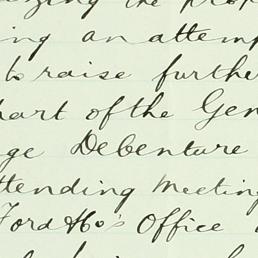 the prop
ing an attemp
to raise furthe
part of the Gen
ge Debenture
ttending Meeting
Ford & Co's Office